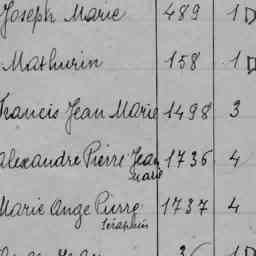 Joseph Marie 489 1
Mathurin 158 1
Francis Jean Marie 1498 3
Alexandre Pierre Jean 1736 4
Marie
Marie Ange Pierre 1737 4
Séraphin